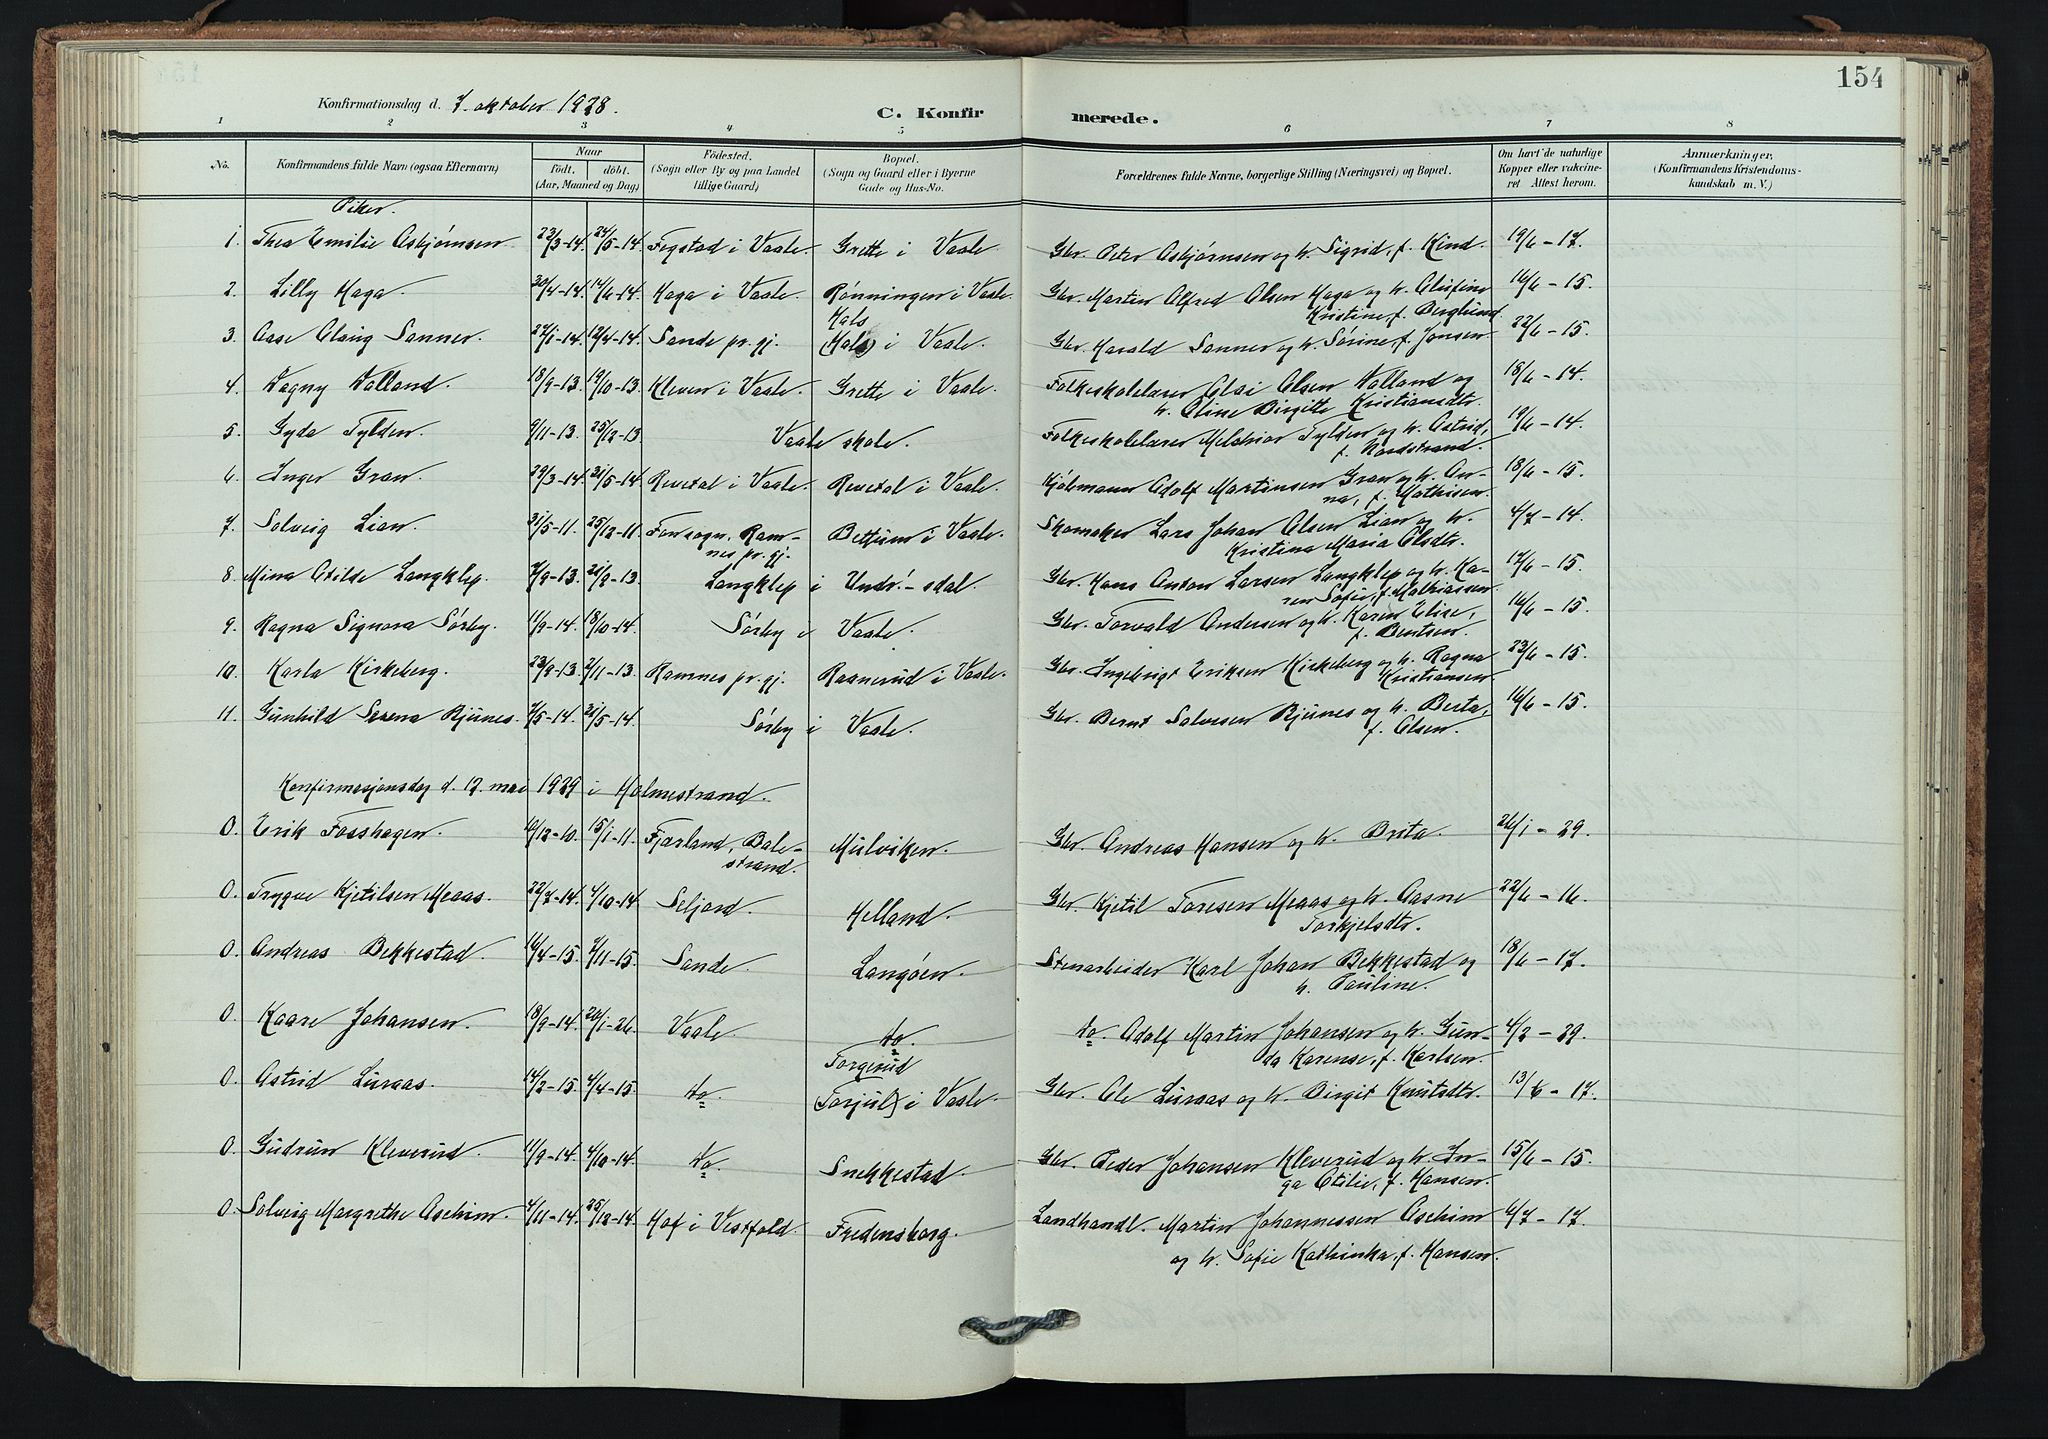 154
Konfirmationsdag d. 7. oktober 1928.
C. Konfirmerede.
1 2 3 4 5 6 7 8
No.
Konfirmandens fulde Navn (ogsaa Efternavn)
Naar
födt. döbt.
(Aar, Maaned og Dag)
Födested.
(Sogn eller By og paa Landet
tillige Gaard)
Bopæl.
(Sogn og Gaard eller i Byerne
Gade og Hus-No.
Forældrenes fulde Navne, borgerlige Stilling (Næringsvei) og Bopæl.
Om havt de naturlige
Kopper eller vakcine-
ret Attest herom.
Anmærkninger.
(Konfirmandens Kristendoms-
kundskab m. V.)
Piker.
1. Thea Emilie Asbjørnsen 22/3-14. 24/5-14. Fegstad i Vaale. Grette i Vaale Gbr. Peter Asbjørnsen og h. Sigrid, f. Kind. 19/6-17.
2. Lilly Haga. 20/4-14. 14/6-14. Haga i Vaale. Rønningen i Vaale. Gbr. Martin Alfred Olsen Haga og h. Olufine 16/6-15.
Kristine, f. Berglund.
Hals
3. Aase Olaug Sanner. 27/1-14. 12/4-14. Sande pr.gj. (Hals) i Vaale. Gbr. Harald Sanner og h. Sørine, f. Jonsen. 22/6-15.
4. Dagny Dolland. 18/9-13. 19/10-13. Kleven i Vaale. Grette i Vaale. Folkeskolelærer Olai Olsen Dolland og 18/6-14.
h. Oline Birgitte Kristiansdtr.
5. Gyda Tylden. 9/11-13. 25/12-13. Vaale skole. Folkeskolelærer Melchior Tylden og h. Astrid, 19/6-14.
f. Nordstrand.
6. Inger Gran. 29/3-14. 21/5-14. Revetal i Vaale. Revetal i Vaale. Kjøbmann Adolf Martinsen Gran og h. An- 18/6-15.
na, f. Mathisen.
7. Solveig Lian. 31/5-11. 25/12-11. Fonsogn, Ram- Bettum i Vaale. Skomaker Lars Johan Olsen Lian og h. 4/7-14.
nes pr. gj. Kristina Maria Olsdtr.
8. Mina Otilde Langklep. 7/8-13. 21/9-13. Langklep i Undr.-sdal Gbr. Hans Anton Larsen Langklep og h. Ka- 17/6-15.
ren Sofie, f. Mathiassen.
9. Ragna Signora Sørby. 11/9-14. 18/10-14. Sørby i Vaale. Gbr. Torvald Andersen og h. Karen Elise, 16/6-15.
f. Bentsen.
10. Karla Kirkeberg. 23/8-13. 2/11-13. Ramnes pr.gj. Raanerud i Vaale. Gbr. Ingebrigt Eriksen Kirkeberg og h. Ragna 23/6-15.
Kristiansen.
11. Gunhild Serena Bjunes. 7/5-14. 21/5-14. Sørby i Vaale. Gbr. Bernt Salvesen Bjunes og h. Berta, 16/6-15.
f. Olsen.
Konfirmasjonsdag d. 12. mai 1929 i Holmestrand.
0. Erik Fosshagen. 10/12-10. 15/1-11. Fjærland, Bale- Mulviken. Gbr. Andreas Hansen og h. Brita. 26/1-29.
strand.
0. Trygve Kjetilsen Meaas. 22/7-14. 4/10-14 Seljord. Helland. Gbr. Kjetil Toresen Meaas og h. Aasne 22/6-16.
Torkjelsdtr.
0. Andreas Bekkestad. 16/4-15. 7/11-15. Sande. Langøen. Stenarbeider Karl Johan Bekkestad og 18/6-17.
h. Pauline.
0. Kaare Johansen. 18/9-14. 20/1-26. Vaale do. do. Adolf Martin Johansen og h. Gun- 4/2-29.
da Karense, f. Karlsen.
Torgerud
0. Astrid Luraas. 14/2-15. 4/4-15. do. (Torjul) i Vaale. Gbr. Ole Luraas og h. Birgit Knutsdtr. 13/6-17.
0. Gudrun Kleverud. 11/9-14. 4/10-14. do. Snekkestad. Gbr. Peder Johansen Kleverud og h. In- 15/6-15.
ga Otilie, f. Hansen.
0. Solveig Margrethe Aschim. 4/11-14. 25/12-14. Hof i Vestfold. Fredensborg. Landhandl. Martin Johannessen Aschim 6/7-17.
og h. Sofie Kathinka, f. Hansen.